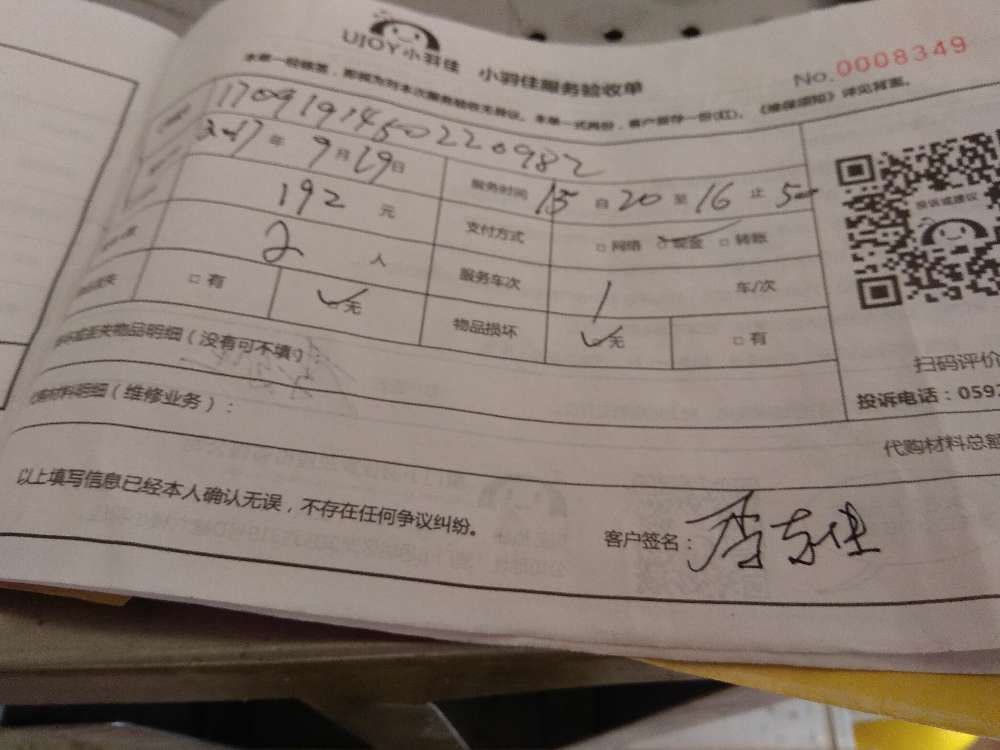 UJOY小羽佳 小羽佳服务验收单
No.0008349
本单一经签署，即视为对本次服务验收无异议。本单一式两份，客户留存一份(红)。《维保须知》详见背面。
1709191450220982
2017年9月19日 服务时间 15自20至16止50
192元 支付方式 □网络 ☑现金 □转账
2人 服务车次 1 车/次
□有 ☑无 物品损坏 ☑无 □有
投诉或建议
丢失物品明细（没有可不填）：
材料明细（维修业务）：
扫码评价
投诉电话：0592
代购材料总额
以上填写信息已经本人确认无误，不存在任何争议纠纷。
客户签名：